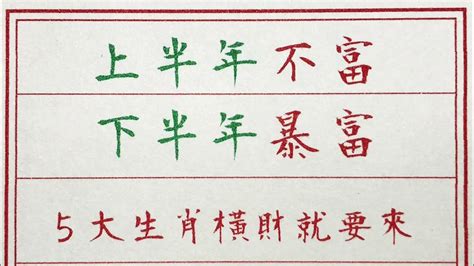 上半年不富
下半年暴富
5大生肖橫財就要來